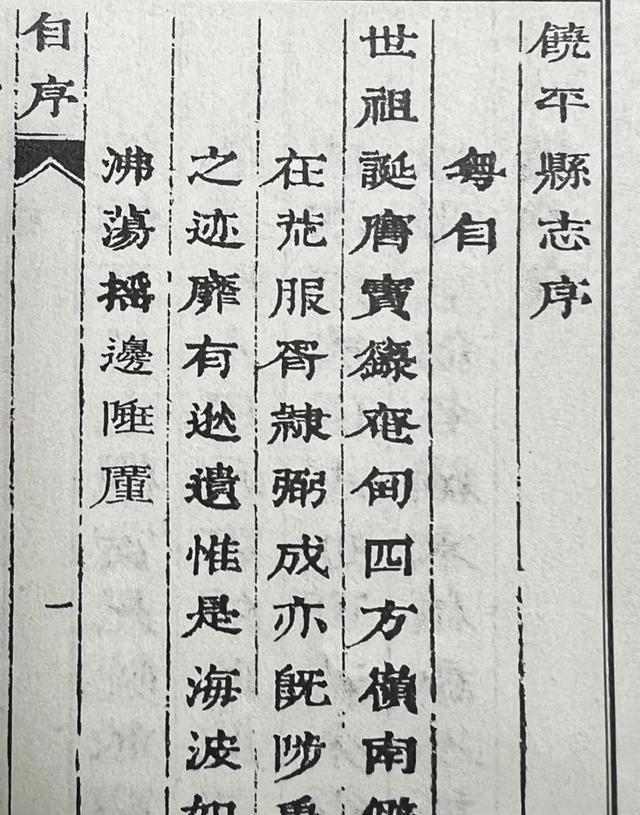 饒平縣志序
粵自
世祖誕膺寶籙奄甸四方嶺南
在荒服胥隸弼成亦旣陟
之迹靡有遺惟是海波如
沸蕩搖邊陲厪
自序
一